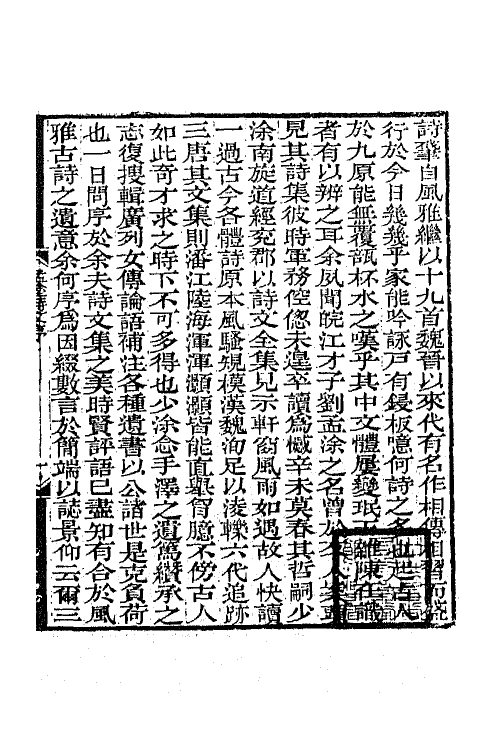 詩肇自風雅繼以十九首魏晉以來代有名作相傳相習而流
行於今日幾幾乎家能吟詠戶有鋟板噫何詩之多也然古人
於九原能無覆瓿杯水之嘆乎其中文體屢變珉玉雜陳在識
者有以辨之耳余夙聞皖江才子劉孟涂之名曾於
見其詩集彼時軍務倥偬未遑卒讀為憾辛未莫春其哲嗣少
涂南旋道經兖郡以詩文全集見示軒窗風雨如遇故人快讀
一過古今各體詩原本風騷規模漢魏洵足以淩轢六代追跡
三唐其文集則潘江陸海渾渾灝灝皆能直舉胷臆不傍古人
如此奇才求之時下不可多得也少涂念手澤之遺篤纘承之
志復搜輯廣列女傳論語補注各種遺書以公諸世是克負荷
也一日問序於余夫詩文集之美時賢評語已盡知有合於風
雅古詩之遺意余何序為因綴數言於簡端以誌景仰云爾三